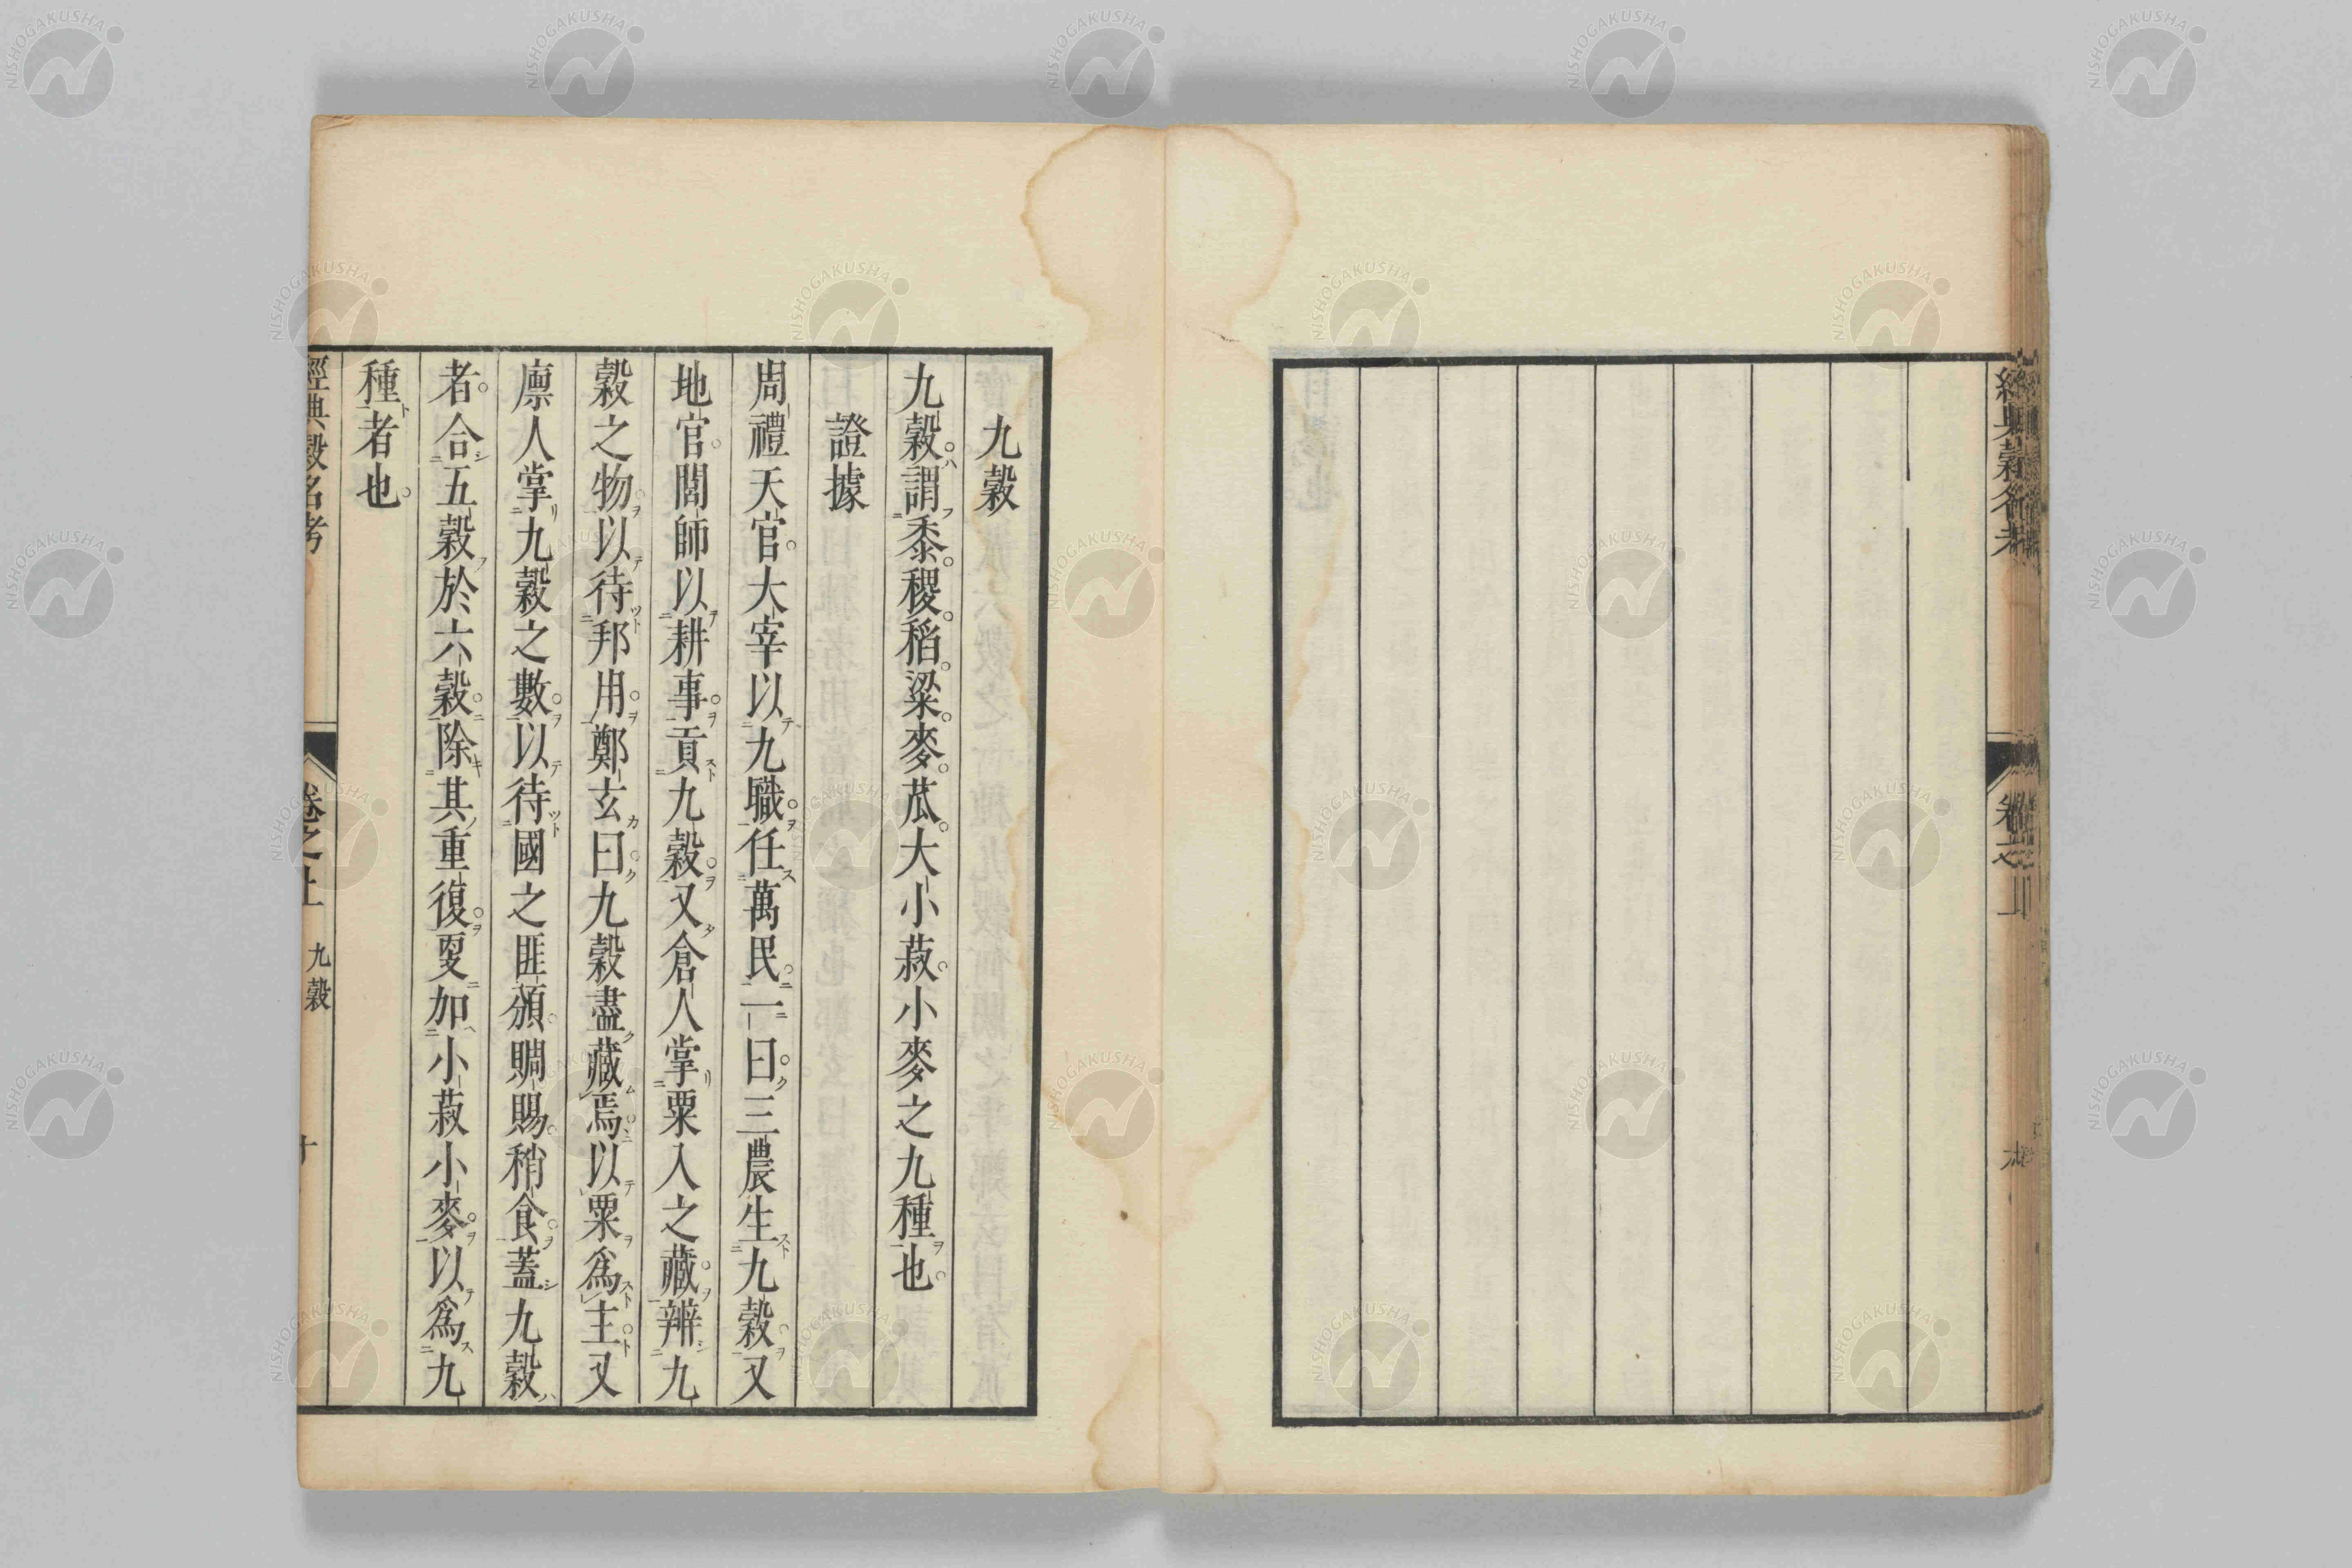 經典穀名考 卷之上
九穀
九穀謂黍稷稻粱麥苽大小菽小麥之九種也
證據
周禮天官大宰以九職任萬民一曰三農生九穀又
地官閭師以耕事貢九穀又倉人掌粟入之藏辨九
穀之物以待邦用鄭玄曰九穀盡藏焉以粟爲主又
廩人掌九穀之數以待國之匪頒賙賜稍食蓋九穀
者合五穀於六穀除其重復更加小菽小麥以爲九
種者也
經典穀名考 卷之上 九穀 十
NISHOGAKUSHA